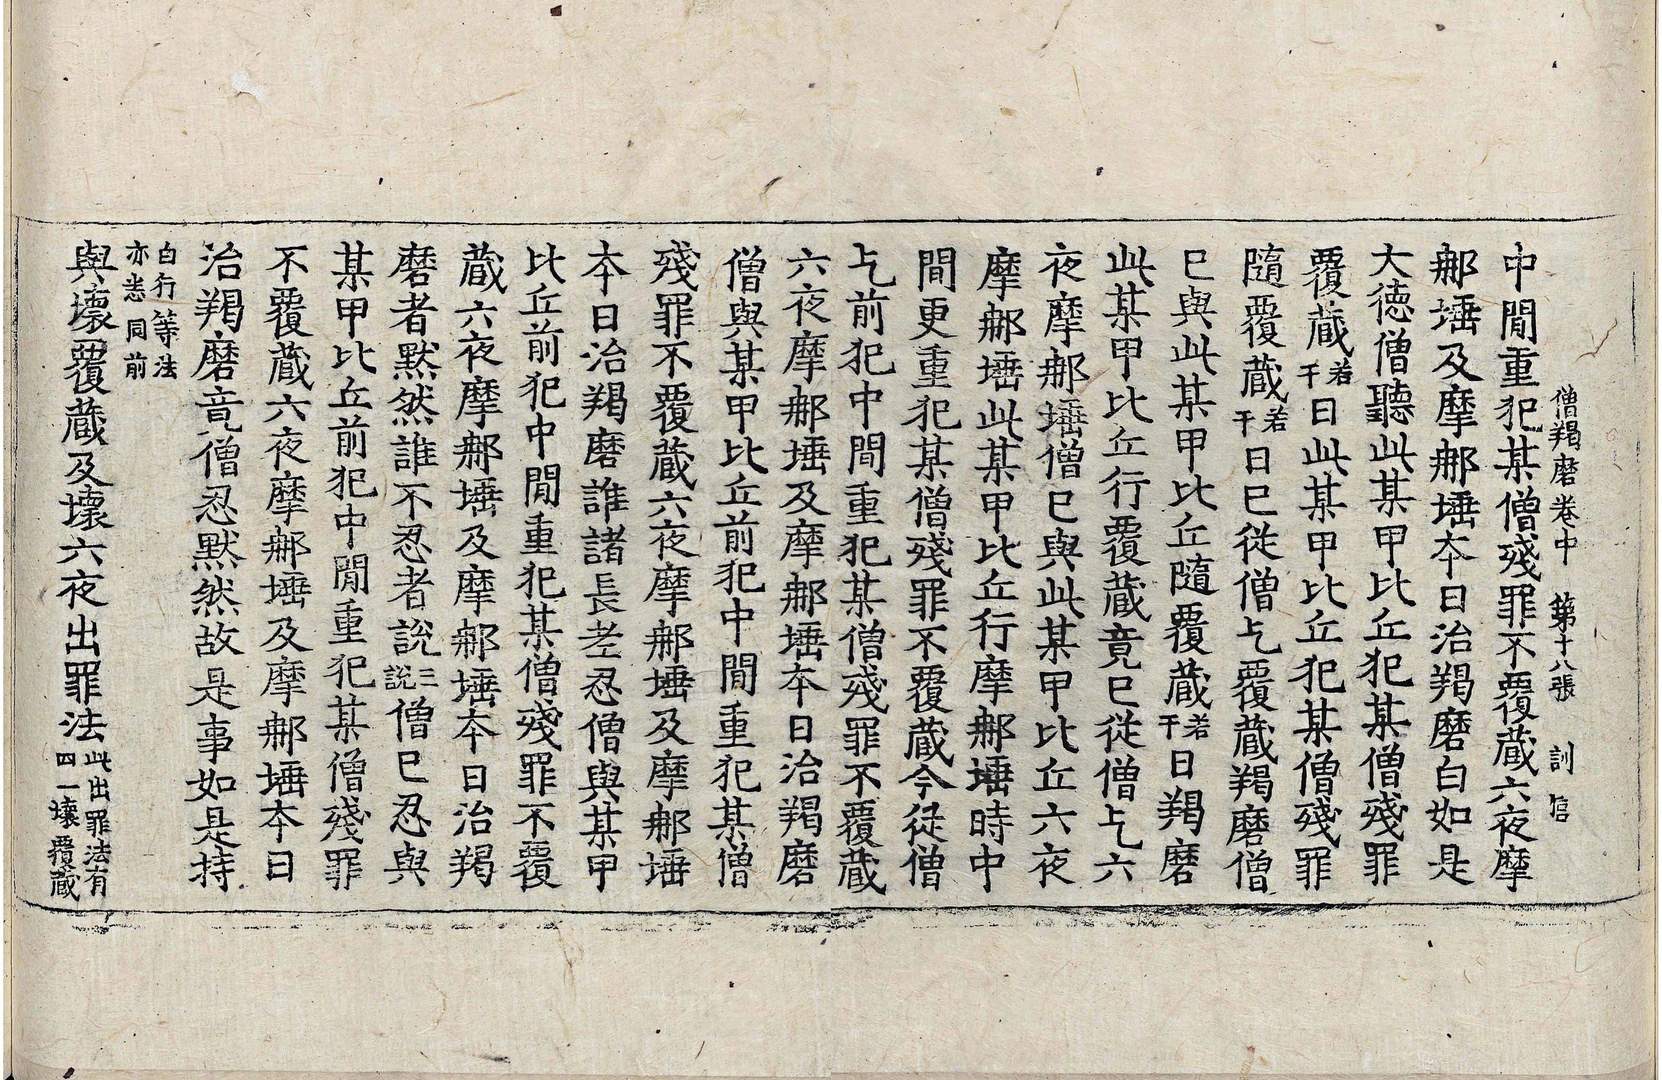 僧羯磨卷中 第十八張 訓 信
中閒重犯某僧殘罪不覆藏六夜摩
那埵及摩那埵夲日治羯磨白如是
大德僧聽此某甲比丘犯某僧殘罪
覆藏若干日此某甲比丘犯某僧殘罪
隨覆藏若干日已從僧乞覆藏羯磨僧
已與此某甲比丘隨覆藏若干日羯磨
此某甲比丘行覆藏竟已從僧乞六
夜摩那埵僧已與此某甲比丘六夜
摩那埵此某甲比丘行摩那埵時中
間更重犯某僧殘罪不覆藏今從僧
乞前犯中間重犯某僧殘罪不覆藏
六夜摩那埵及摩那埵夲日治羯磨
僧與某甲比丘前犯中間重犯某僧
殘罪不覆藏六夜摩那埵及摩那埵
夲日治羯磨誰諸長老忍僧與某甲
比丘前犯中閒重犯某僧殘罪不覆
藏六夜摩那埵及摩那埵夲日治羯
磨者黙然誰不忍者說三說僧已忍與
某甲比丘前犯中閒重犯某僧殘罪
不覆藏六夜摩那埵及摩那埵夲日
治羯磨竟僧忍黙然故是事如是持
白行等法
亦恙同前
與壞覆藏及壞六夜出罪法此出罪法有
四一壞覆藏